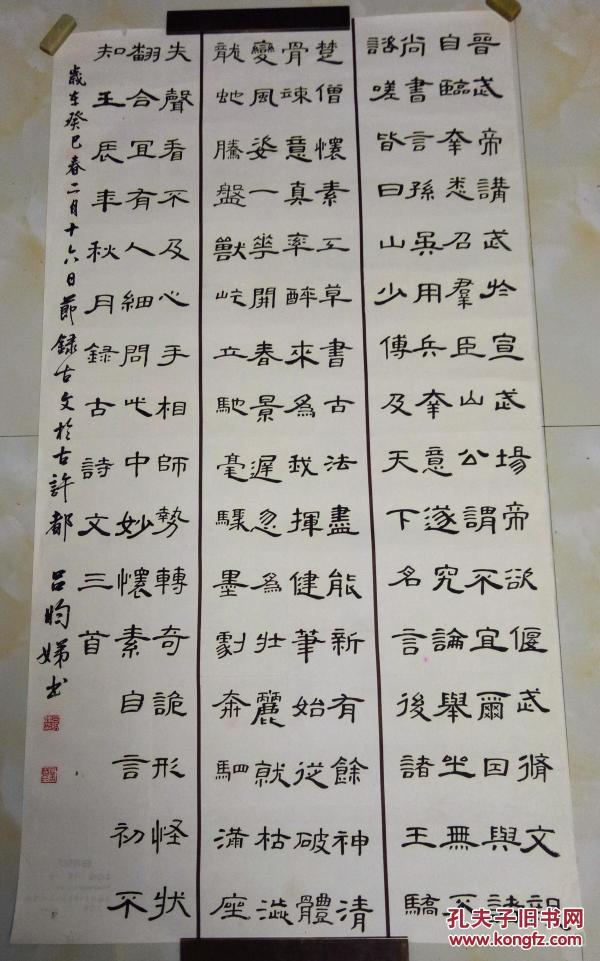 晉武帝講武於宣武場帝欲偃武脩文親
自臨幸悉召羣臣山公謂不宜爾因與諸
尚書言孫吳用兵本意遂究論舉坐無不
諮嗟皆曰山少傅及天下名言後諸王驕
楚僧懷素工草書古法盡能新有餘神清
骨竦意真率醉來爲我揮健筆始從破體
變風姿一華開春景遲忽爲壯麗就枯澁
龍虵騰盤獸屹立馳毫驟墨劇奔駟滿座
失聲看不及心手相師勢轉奇詭形怪状
翻合宜有人細問此中妙懷素自言初不
知壬辰年秋月録古詩文三首
歲在癸巳春二月十六日節録古文於古許都 吕昀娣书
孔夫子旧书网
www.kongfz.com